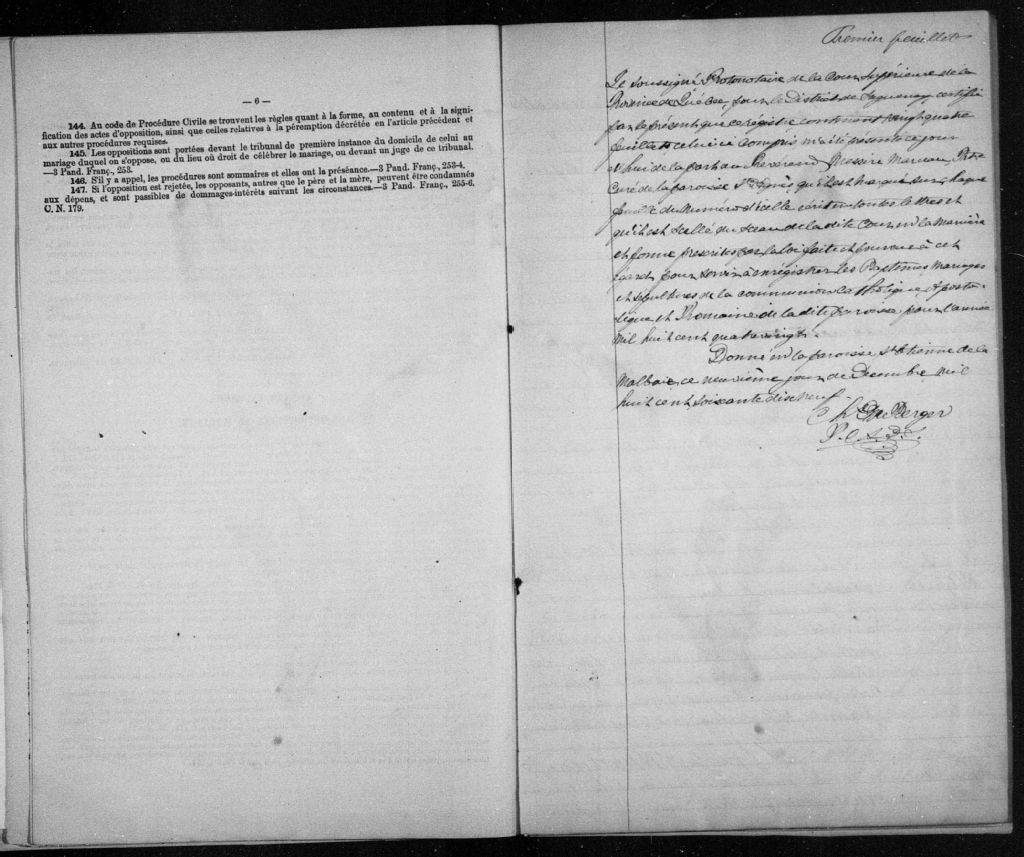 — 6 —
144. Au code de Procédure Civile se trouvent les règles quant à la forme, au contenu et à la signi-
fication des actes d'opposition, ainsi que celles relatives à la péremption décrétée en l'article précédent et
aux autres procédures requises.
145. Les oppositions sont portées devant le tribunal de première instance du domicile de celui au
mariage duquel on s'oppose, ou du lieu où droit de célébrer le mariage, ou devant un juge de ce tribunal.
—3 Pand. Franç., 253.
146. S'il y a appel, les procédures sont sommaires et elles ont la préséance.—3 Pand. Franç., 253-4.
147. Si l'opposition est rejetée, les opposants, autres que le père et la mère, peuvent être condamnés
aux dépens, et sont passibles de dommages-intérêts suivant les circonstances.—3 Pand. Franç., 255-6.
C. N. 179.
Premier feuillet
Le soussigné Protonotaire de la Cour Supérieure de la
Province de Québec, pour le District de Saguenay certifie
par le présent que ce registre contenant vingt quatre
feuillets celui ci compris m'a été présenté ce jour
d'hui de la part du Révérend Messire Moreau, Ptre
Curé de la paroisse Ste Agnès, qu'il est marqué sur chaque
feuillet du Numéro d'icelle écrit en toutes lettres et
qu'il est scellé du sceau de la dite Cour en la manière
et forme prescrites par la loi faite et pourvue à cet
égard pour servir à enrégistrer les Baptêmes Mariages
et sépultures de la communion Catholique, Aposto-
lique et Romaine de la dite paroisse pour l'année
Mil huit cent quatre vingt.
Donné en la paroisse St Etienne de la
Malbaie, ce neuvième jour de Décembre mil
huit cent soixante dix neuf.
Ch DuBerger
P. C. S. D. S.